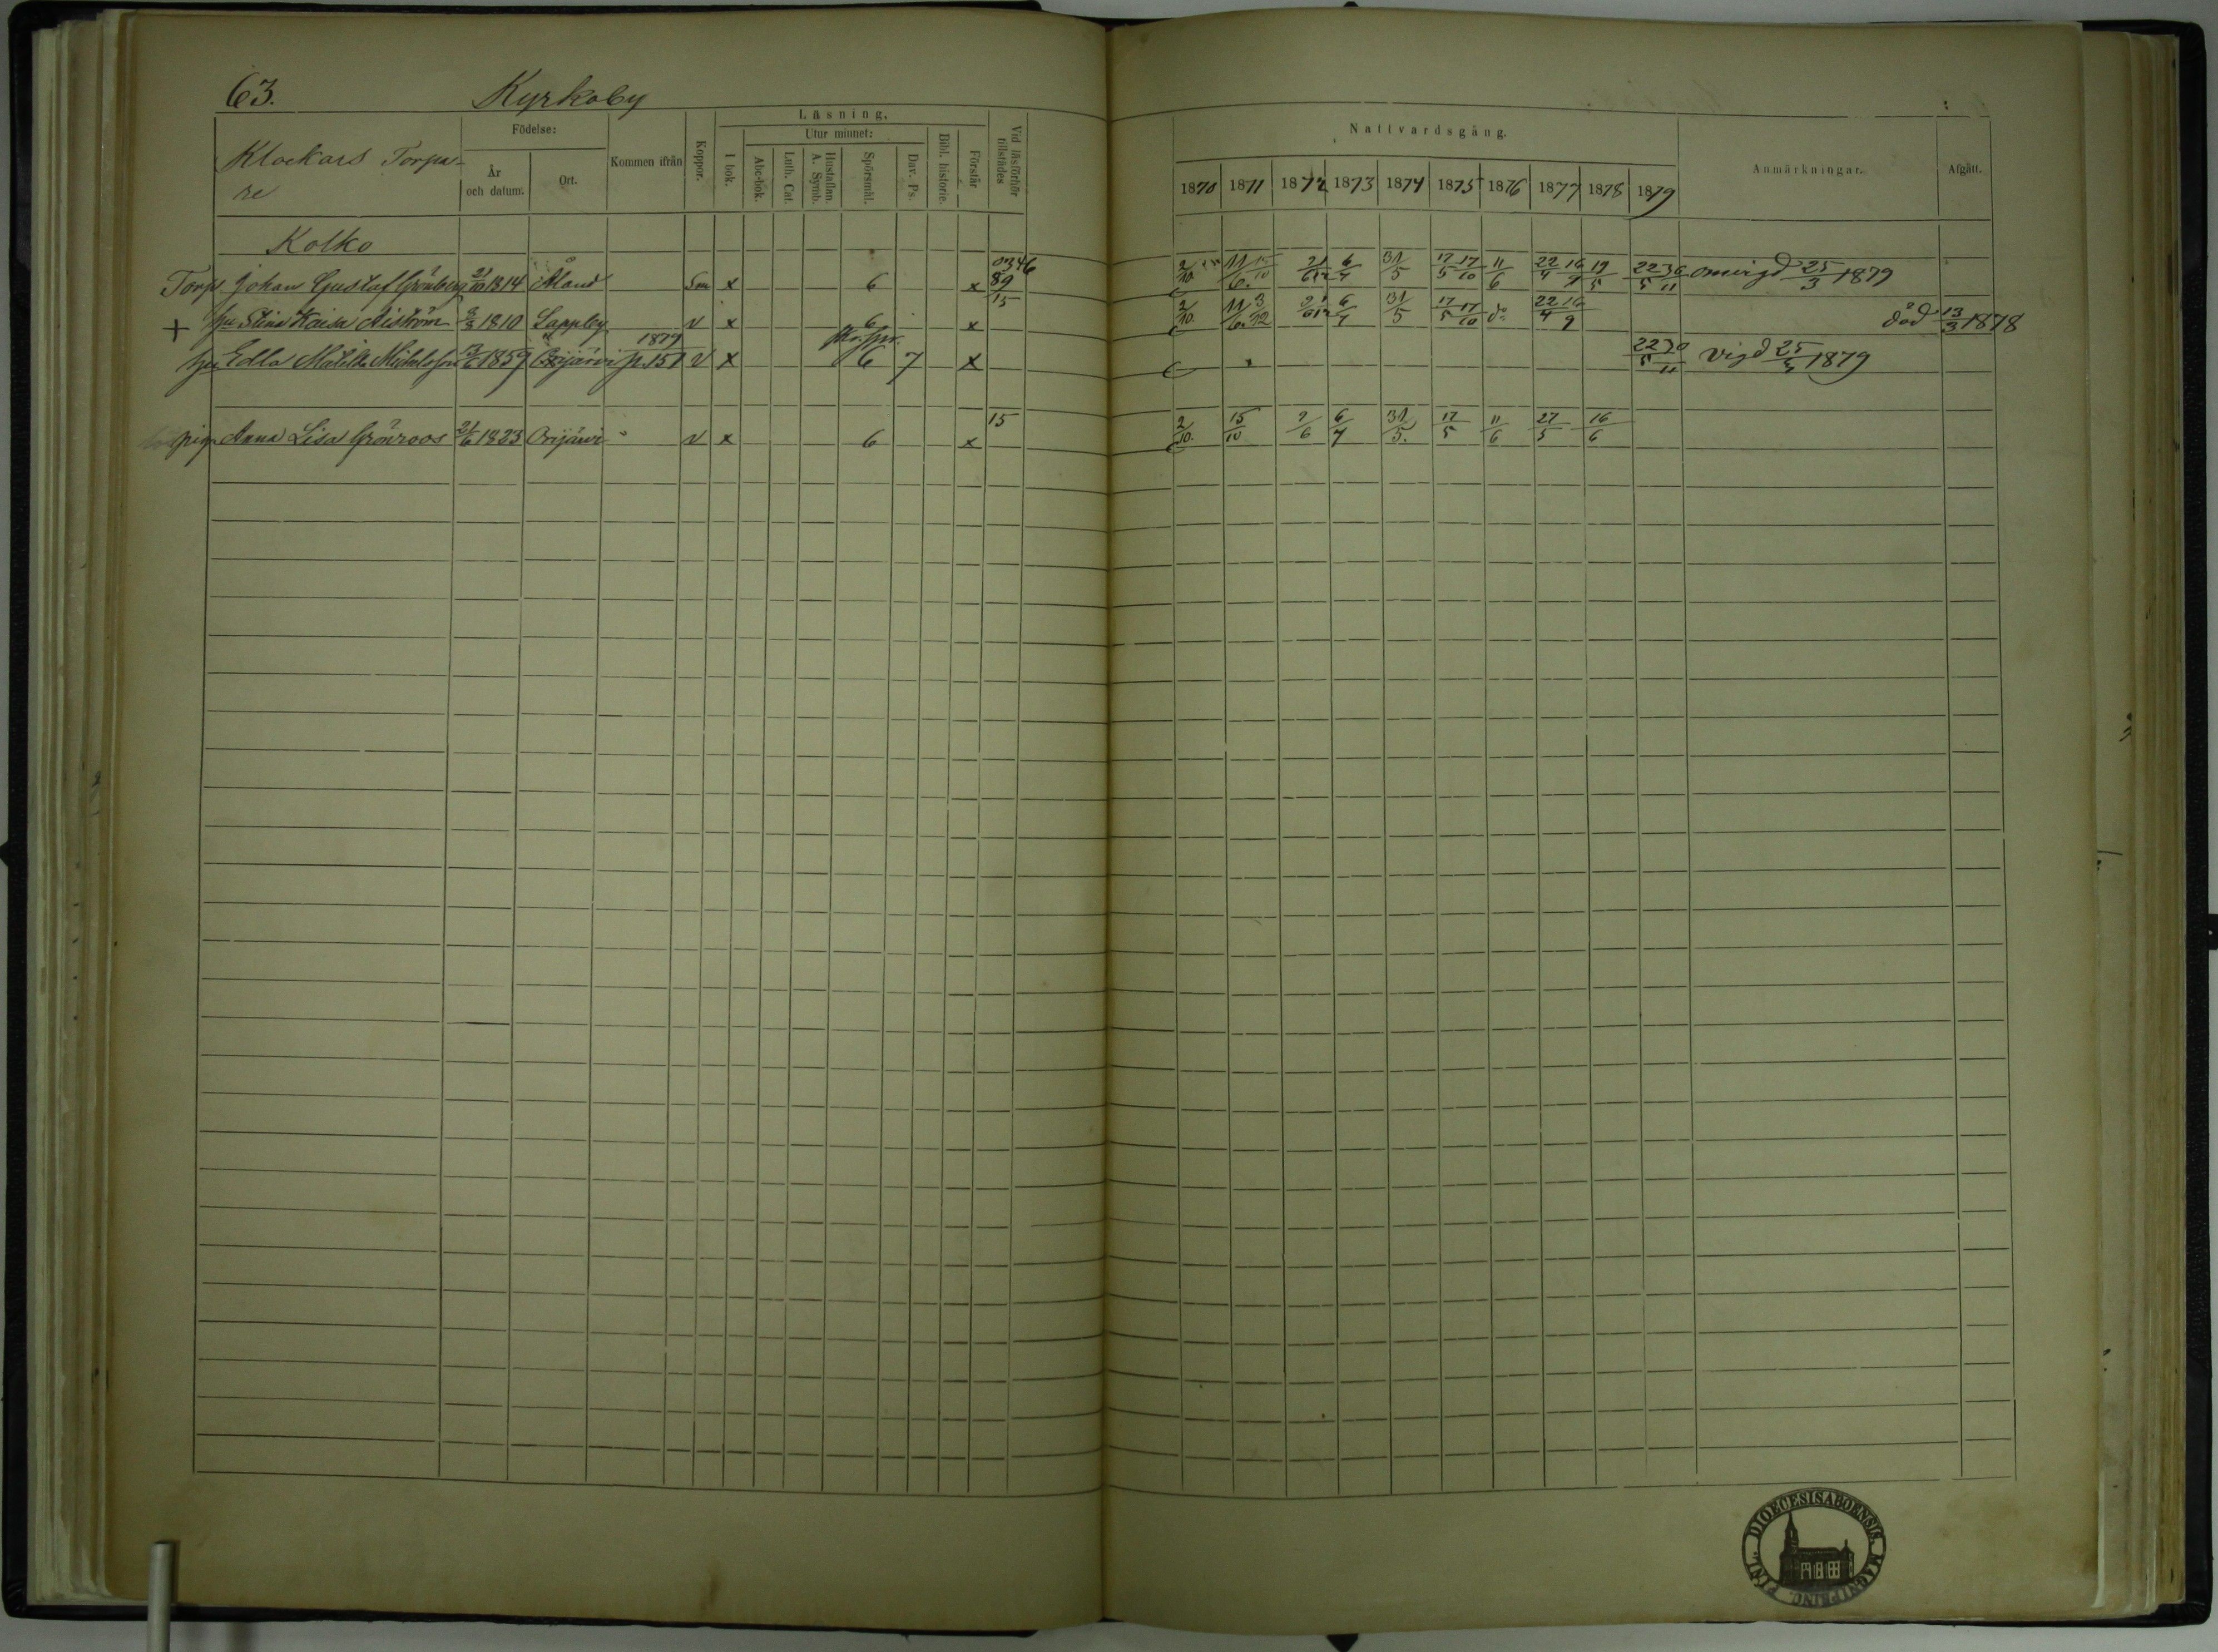 63. Kyrkoby
Klockars Torpa-
re
Födelse:
År
och datum.
Ort.
Kommen ifrån
Koppor.
Läsning.
I bok.
Utur minnet:
Abc-bok.
Luth. Cat.
Hustaflan.
A. Symb.
Spörsmål.
Dav. Ps.
Bibl. historie.
Förstår
Vid läsförhör
tillstädes
Nattvardsgång.
1870 1871 1872 1873 1874 1875 1876 1877 1878 1879
Anmärkningar.
Afgått.
Kolko
Torp. Johan Gustaf Grönberg 21/10 1814 Åland Sm x 6 x 89 2/10 11/6 15/10 6/7 31/5 17/5 17/10 11/6 22/4 16/9 19/5 22/5 30/11 omvigd 25/3 1879
+ hu Stina Kaisa 3/3 1810 Lappby v x 6 x 15 2/10 11/6 3/12 6/7 31/5 17/5 17/10 do 22/4 16/9 död 13/3 1878
1879
hu Edla Matilda 1859 Orijärvi p. 151 v x 6 7 x 22/5 30/11 vigd 25/3 1879
pig. Anna Lisa Grönroos 21/6 1823 Orijärvi v x 6 x 15 2/10 15/10 2/6 6/7 31/5 17/5 11/6 27/5 16/6
FINL. DIOECESIS ABOENSIS MAGNI PRINC.